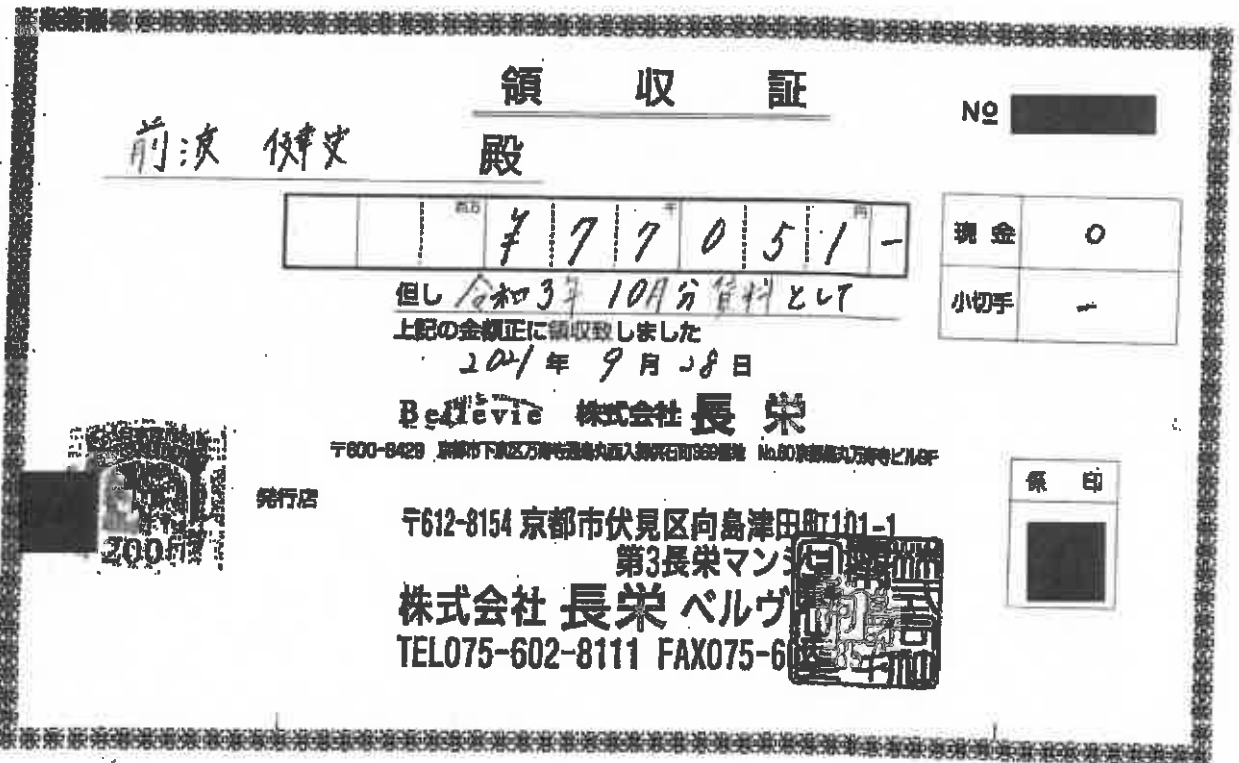 領収証
No
前波健史 殿
百万 千 円
¥77051-
現金 ○
小切手 -
但し 令和3年10月分賃料として
上記の金額正に領収致しました
2021年9月28日
Bellevie 株式会社 長栄
〒600-8429 京都市下京区万寿寺通烏丸西入御供石町369番地 No.60京都烏丸万寿寺ビル9F
200円
発行店
係印
〒612-8154 京都市伏見区向島津田町101-1
第3長栄マンション
株式会社 長栄 ベルヴ
TEL075-602-8111 FAX075-60